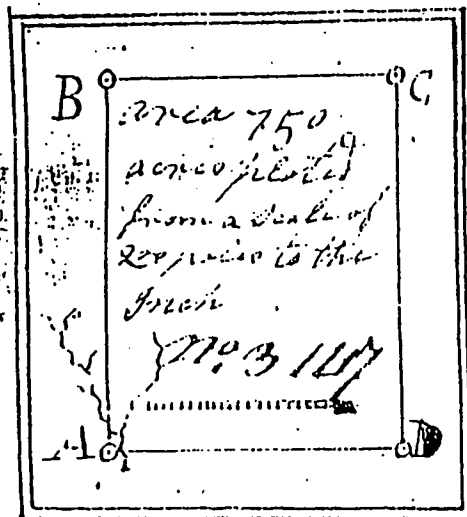 B C
area 750
acres plotted
from a scale of
200 poles to the
Inch
No. 3 117
A D